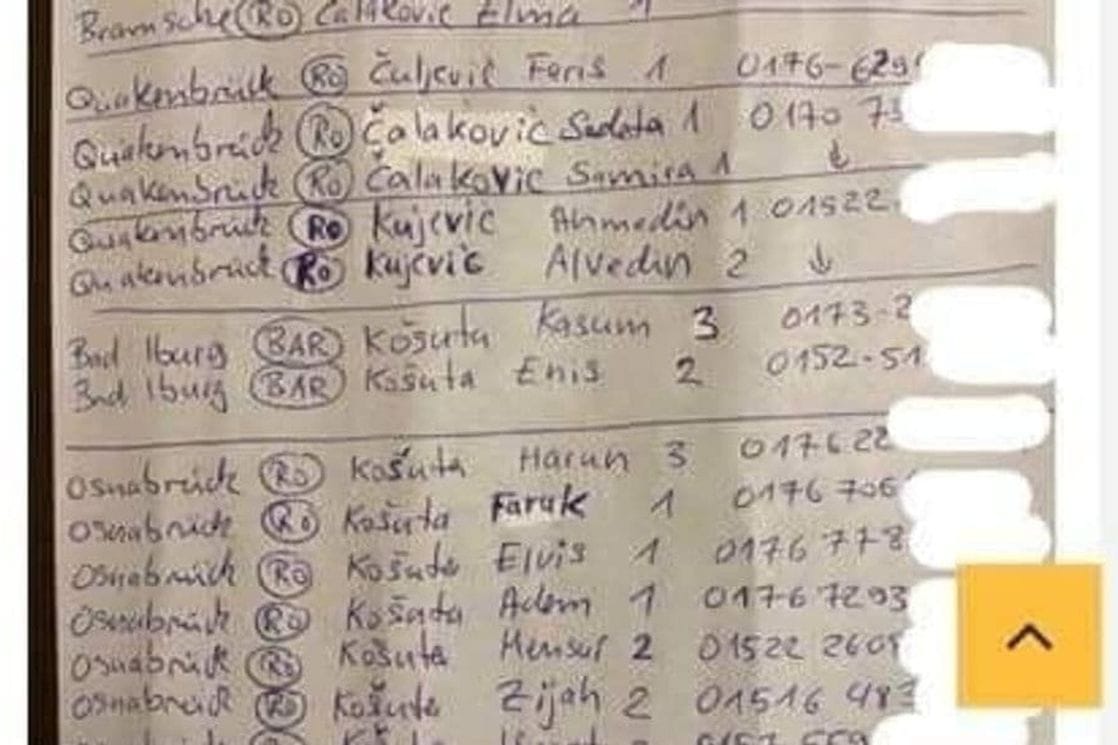 Bramsche Ro Čalaković Elma 1
Quakenbrück Ro Čuljević Faris 1 0176-629
Quakenbrück Ro Čalaković Sadata 1 0170 73
Quakenbrück Ro Čalaković Samira 1 ↓
Quakenbrück Ro Kujević Ahmedin 1 01522
Quakenbrück Ro Kujević Alvedin 2 ↓
Bad Iburg BAR Košuta Kasum 3 0173-2
Bad Iburg BAR Košuta Enis 2 0152-51
Osnabrück Ro Košuta Harun 3 017622
Osnabrück Ro Košuta Faruk 1 0176 706
Osnabrück Ro Košuta Elvis 1 0176 778
Osnabrück Ro Košuta Adem 1 0176 7293
Osnabrück Ro Košuta Mensur 2 01522 260
Osnabrück Ro Košuta Zijah 2 01516 483